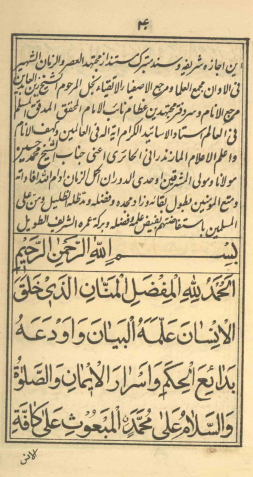 ۴
این اجازه شریفه و سند مبارک مستند از مجتهد العصر والزمان الشهیر
فی الاوان مجمع العلماء و مرجع الاصفیاء الاتقیاء نجل المرحوم الشیخ زین العابدین
مرجع الانام و سرور مجتهدین عظام نایب الامام المحقق المدقق المسلم
فی العالم ستاد الاساتید الکرام آیة الله فی العالمین و کهف الانام
و اعلم الاعلام المازندرانی الحائری اعنی جناب الشیخ محمد حسین
مولانا و مولی المشرقین اوحدی الدوران اکمل الزمان ادام الله افاداته
و متع المؤمنین بطول بقائه وزاد مجده و فضله و مد ظله الظلیل و من علی
المسلمین باستفاضتهم بفیض علمه و فضله و برکة عمره الشریف الطویل
بسم الله الرحمن الرحیم
اَلْحَمْدُ لِلّهِ الْمِفْضَلِ الْمَنَّانِ الَّذِی خَلَقَ
الْاِنْسَانَ عَلَّمَهُ الْبَیَانَ وَاَوْدَعَهُ
بَدَایِعَ الْحِکَمِ وَاَسْرَارَ الْاِیمَانِ وَالصَّلٰوةُ
وَالسَّلَامُ عَلٰی مُحَمَّدٍ الْمَبْعُوثِ عَلٰی کَافَّةِ
الانس